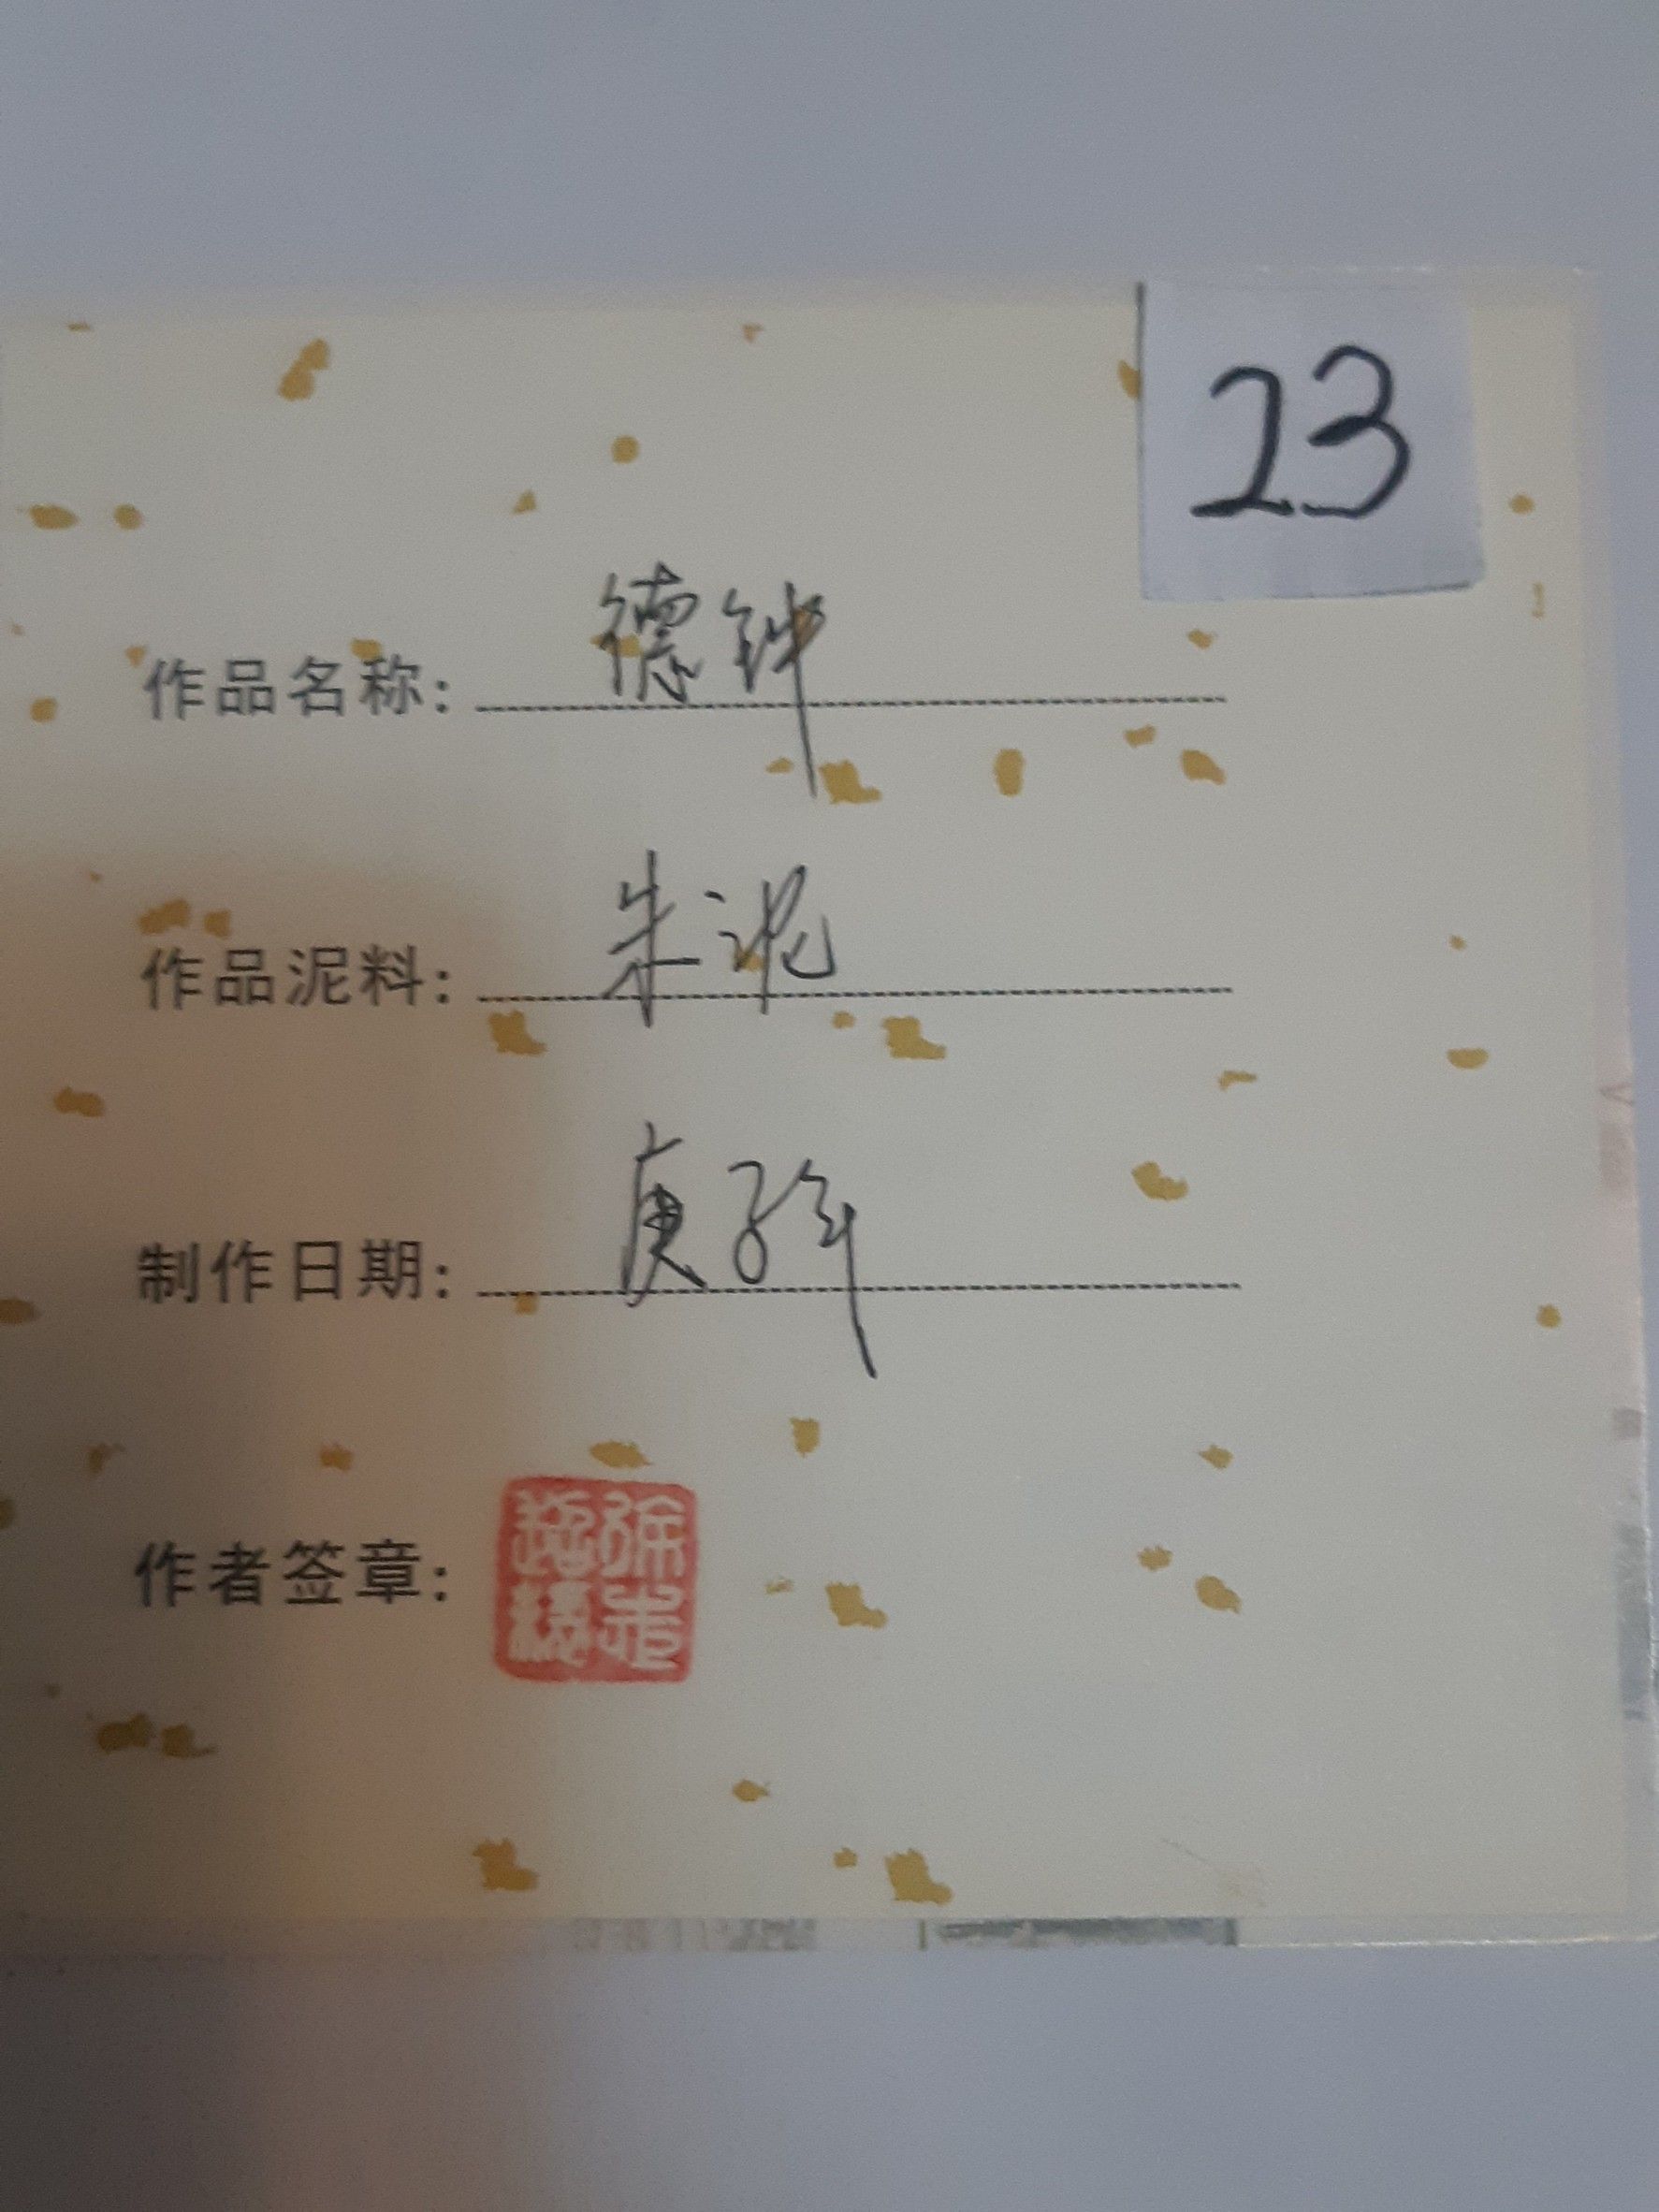 23
作品名称: 德钟
作品泥料: 朱泥
制作日期: 庚子年
作者签章: